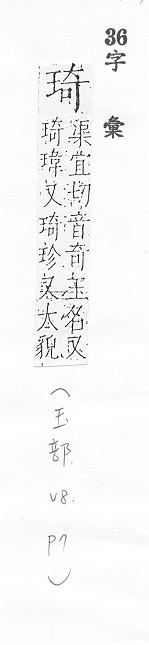 36字 彙
琦
渠宜切音奇玉名又
琦瑋又琦珍又太貌
(玉部. v8. p7)